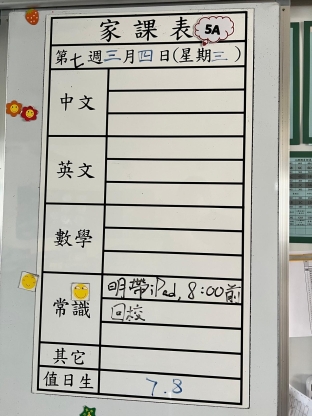 家課表 5A
第七週三月四日(星期三)
中文
英文
數學
常識
明帶iPad, 8:00前
回校
其它
值日生 7.8